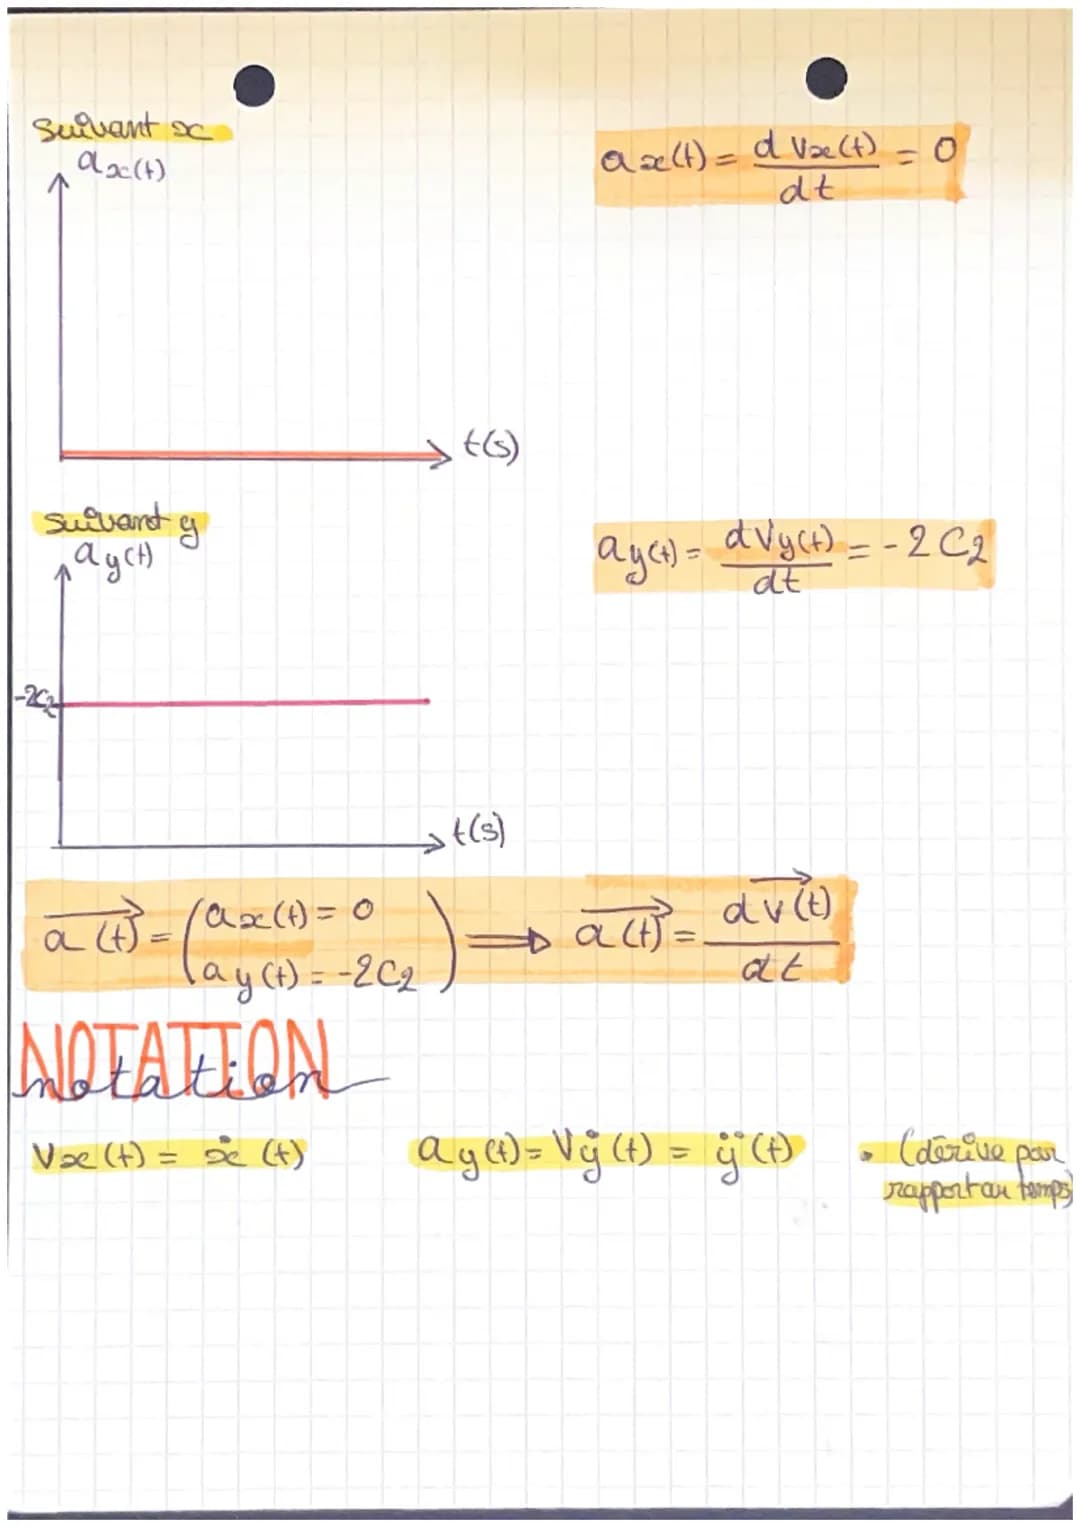 Suivant x
ax(t)
ax(t) = d Vx(t) / dt = 0
t(s)
Suivant y
ay(t)
ay(t) = dVy(t) / dt = -2 C₂
-2C₂
t(s)
a⃗(t) = ( ax(t) = 0 ay(t) = -2C₂ ) ⟹ a⃗(t) = dv⃗(t) / dt
NOTATION
notation
Vx(t) = ẋ(t) ay(t) = V̇y(t) = ÿ(t) • (dérive par
rapport au temps)